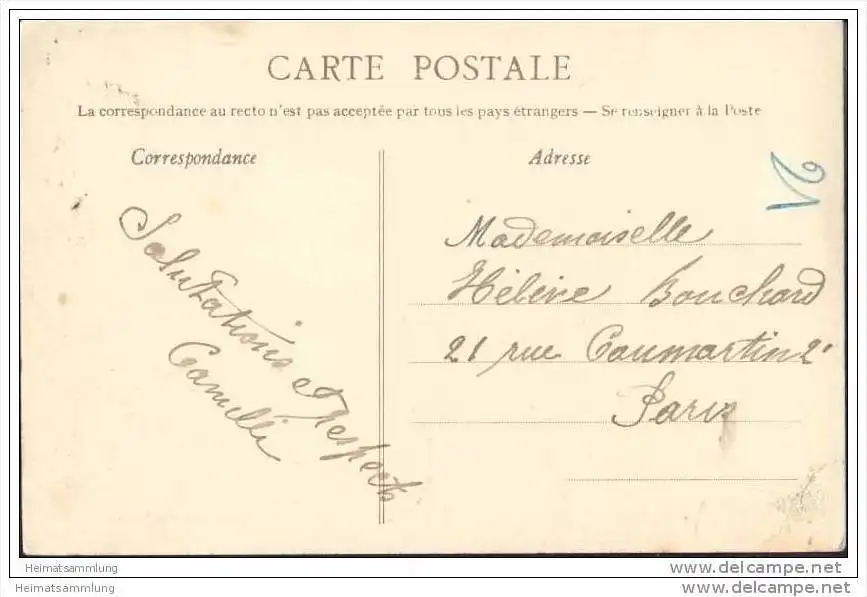 CARTE POSTALE
La correspondance au recto n'est pas acceptée par tous les pays étrangers — Se renseigner à la Poste
Correspondance
Salutations et respects
Camille
Adresse
Mademoiselle
Hélène Bouchard
21 rue Caumartin 2
Paris
Heimatsammlung
Heimatsammlung
www.delcampe.net
www.delcampe.net